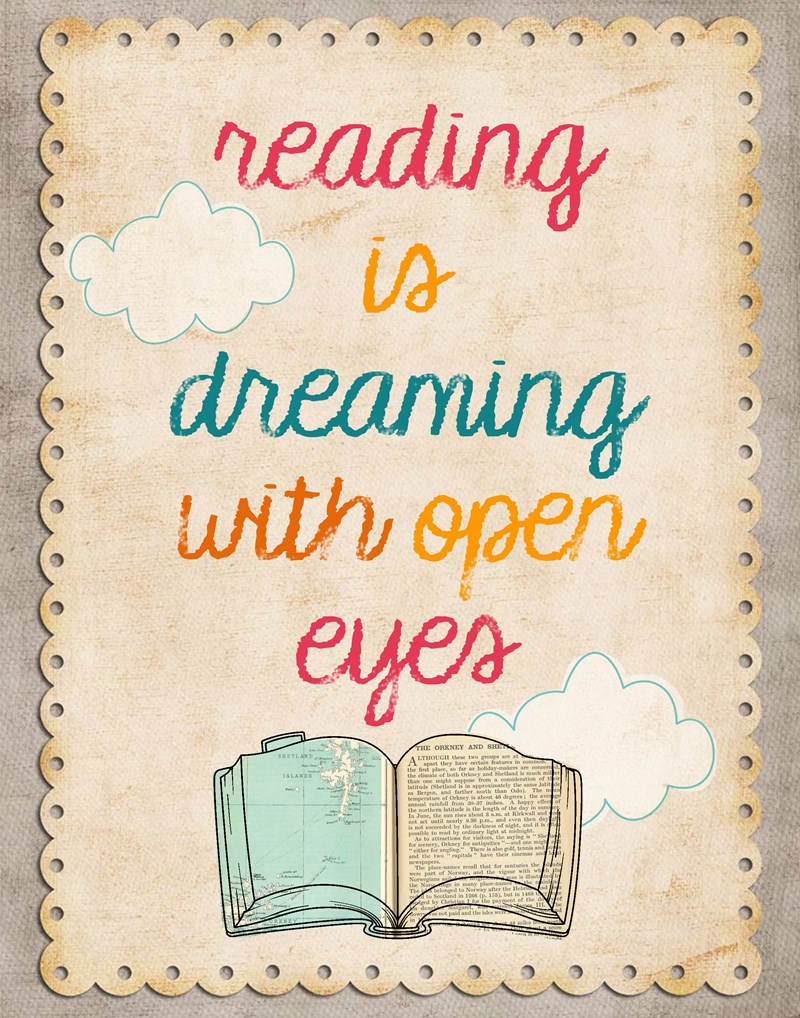 reading
is
dreaming
with open
eyes
SHETLAND
ISLANDS
THE ORKNEY AND
ALTHOUGH these two groups are at
apart they have certain features in common.
the first place, so far as holiday-makers are
the climate of both Orkney and Shetland is much
than one might suppose from a consideration of their
latitude (Shetland is in approximately the same
as Bergen, and farther north than Oslo). The
temperature of Orkney is about 46 degrees; the
annual rainfall from 30-37 inches. A happy effect of
the northern latitude is the length of the day in
In June, the sun rises about 3 a.m. at Kirkwall and
not set until nearly 9.30 p.m., and even then
is not succeeded by the darkness of night, and it is
possible to read by ordinary light at midnight.
As to attractions for visitors, the saying is
for scenery, Orkney for antiquities "—and one might
" either for angling." There is also golf, tennis and
and the two " capitals " have their cinemas and
newspapers.
The place-names recall that for centuries the islands
were part of Norway, and the vigour with which
Norwegians
the Norse
belonged to Norway after the
to Scotland in 1266 (p. 158), but in
by Christian I for the payment of the
Margaret,
was not paid and the isles were
ORKNEY